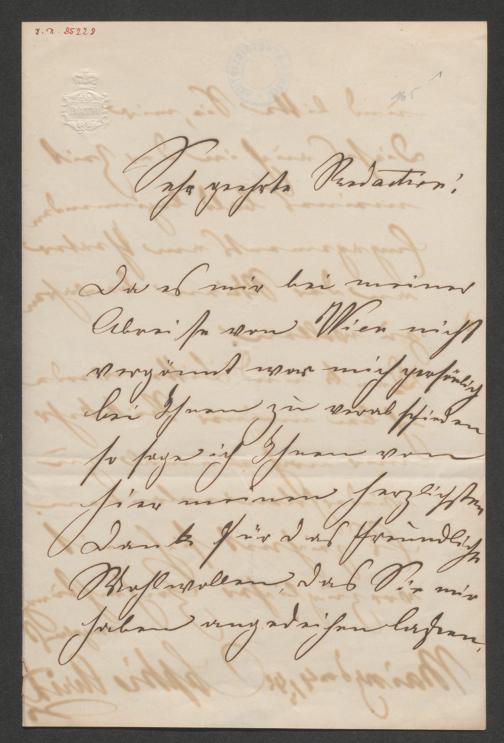 I.N. 85229
165
Sehr geehrte Redaction!
Da es mir bei meiner
Abreise von Wien nicht
vergönnt war mich persönlich
bei Ihnen zu verabschieden
so sage ich Ihnen von
hier meinen herzlichsten
Dank für das freundliche
Wohlwollen, das Sie mir
haben angedeihen lassen,